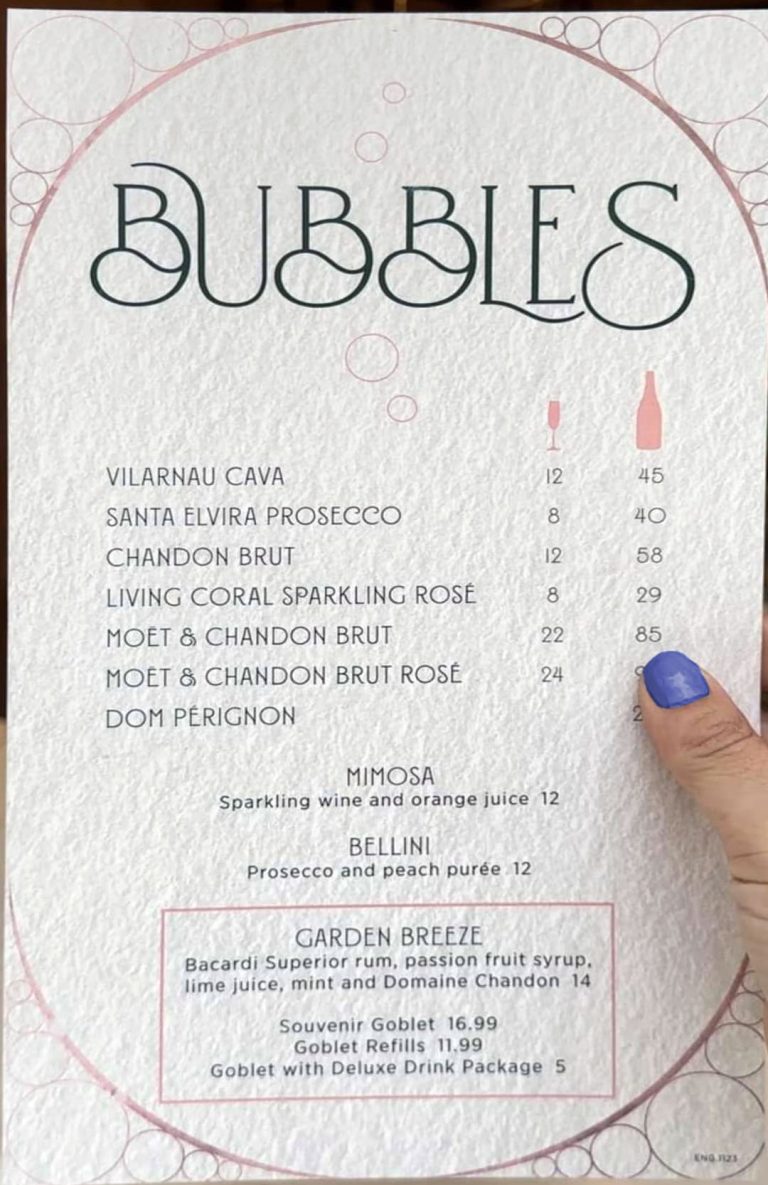 BUBBLES
VILARNAU CAVA 12 45
SANTA ELVIRA PROSECCO 8 40
CHANDON BRUT 12 58
LIVING CORAL SPARKLING ROSÉ 8 29
MOËT & CHANDON BRUT 22 85
MOËT & CHANDON BRUT ROSÉ 24
DOM PÉRIGNON
MIMOSA
Sparkling wine and orange juice 12
BELLINI
Prosecco and peach purée 12
GARDEN BREEZE
Bacardi Superior rum, passion fruit syrup,
lime juice, mint and Domaine Chandon 14
Souvenir Goblet 16.99
Goblet Refills 11.99
Goblet with Deluxe Drink Package 5
ENG.1123